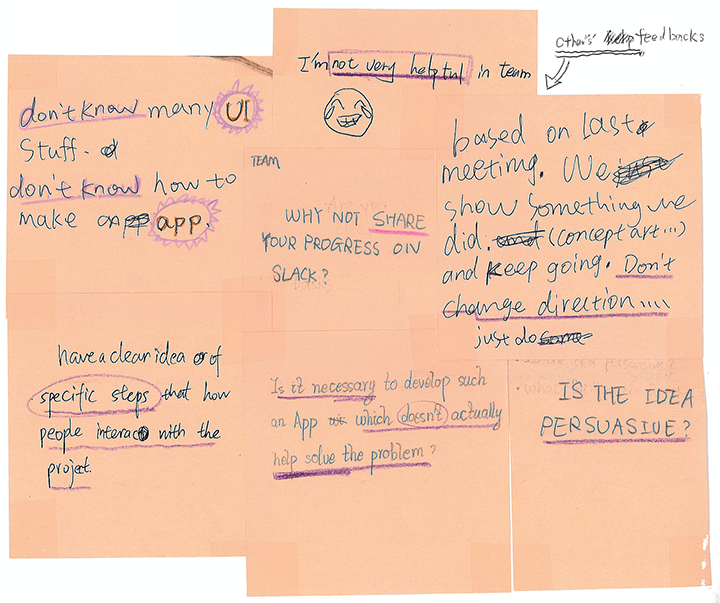 others' feedbacks
I'm not very helpful in team
don't know many UI
stuff.
don't know how to
make app.
TEAM
WHY NOT SHARE
YOUR PROGRESS ON
SLACK?
based on last
meeting. We
show something we
did. (concept art...)
and keep going. Don't
change direction....
just do
have a clear idea of
specific steps that how
people interact with the
project.
Is it necessary to develop such
an App which doesn't actually
help solve the problem?
IS THE IDEA
PERSUASIVE?